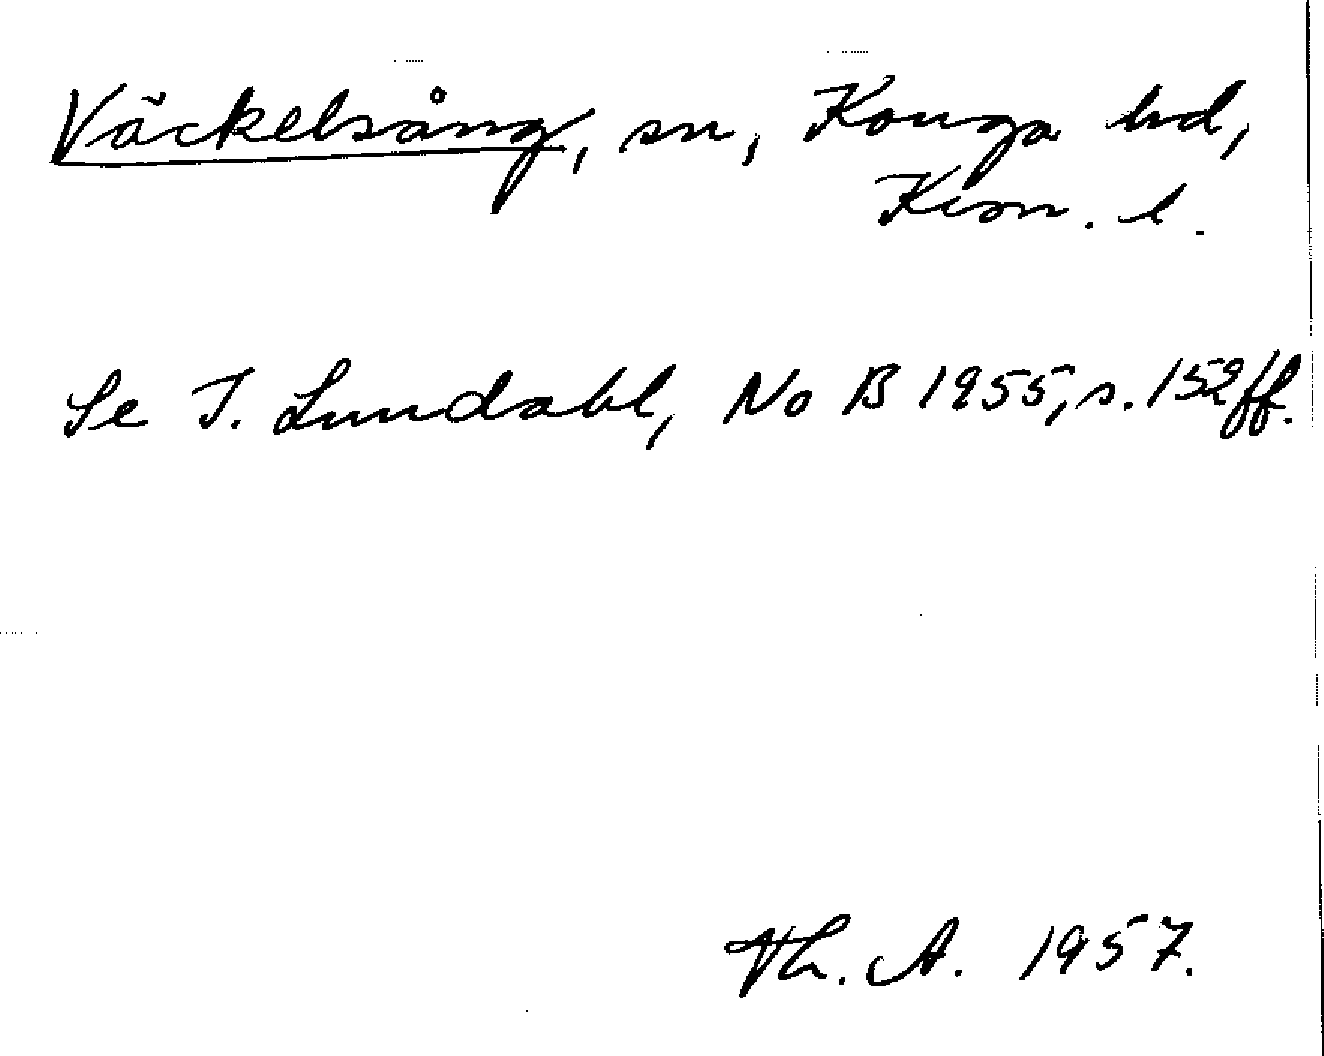 Väckelsång, sn, Konga hd,
Kron. l.
Se I. Lundahl, No B 1955, s. 152 ff.
Th. A. 1957.